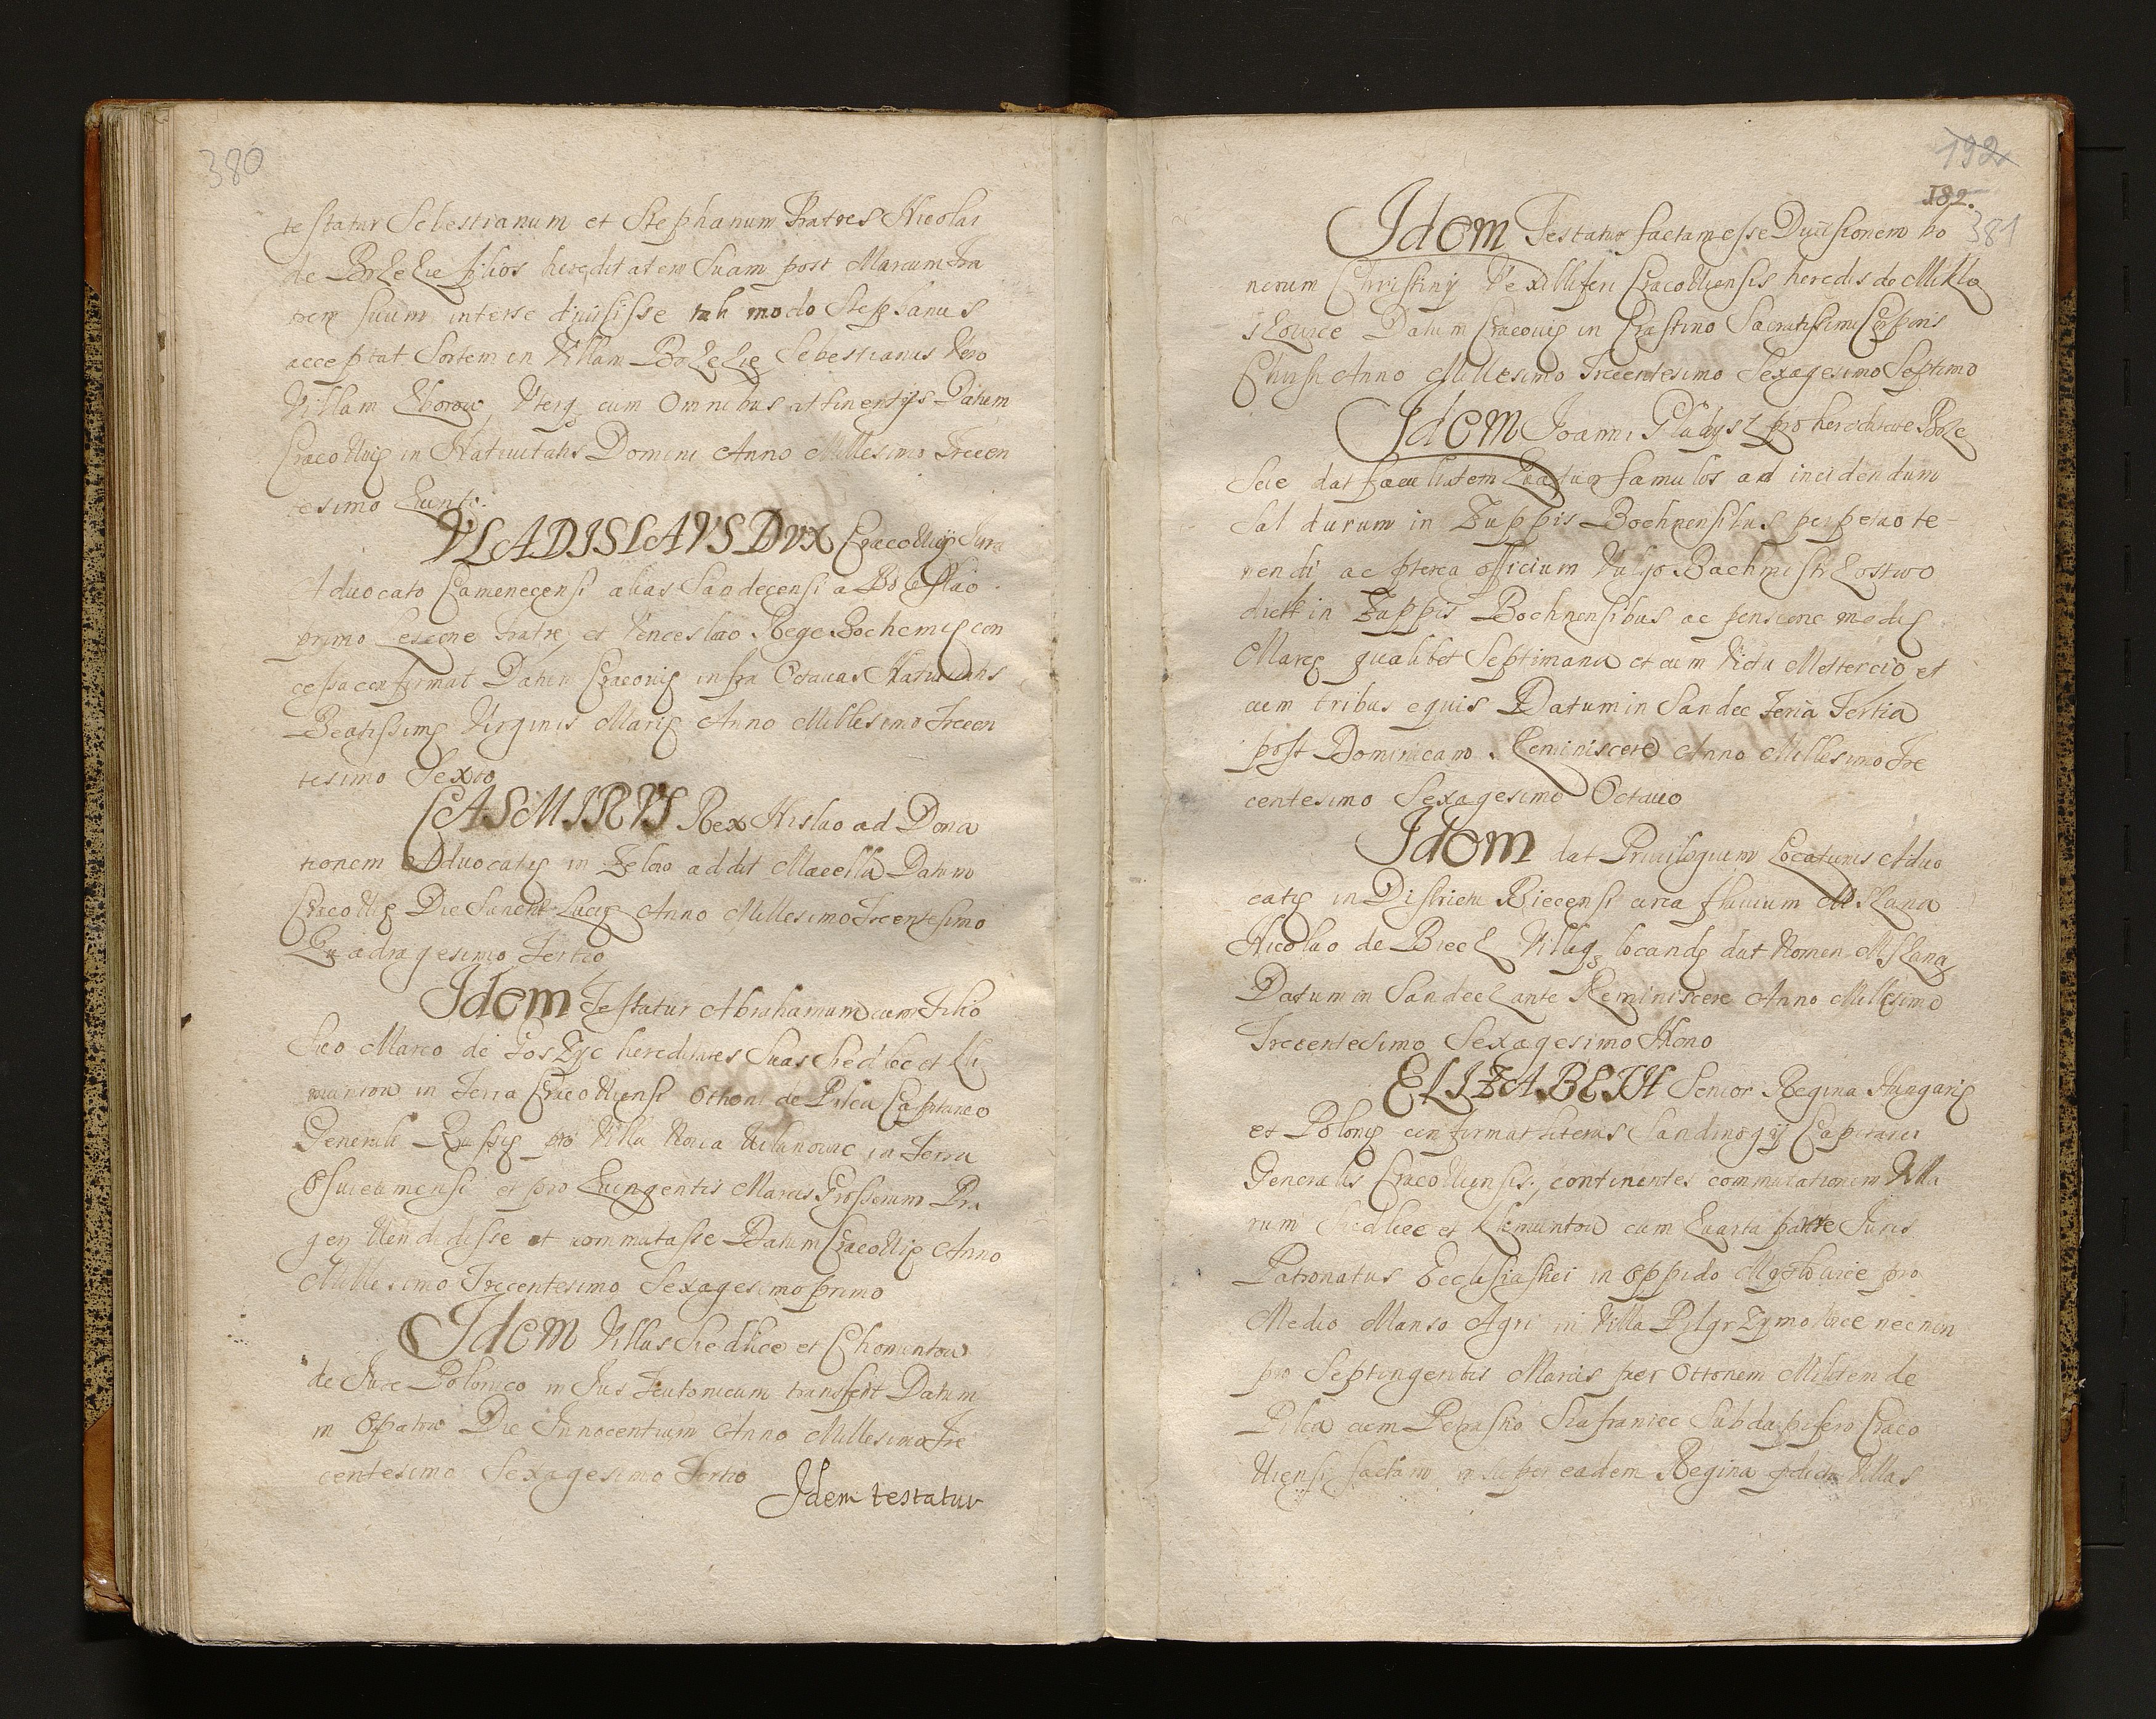 380
testatur Sebestianum et Stephanum Fratres Nicolai
de Bolelie filios hereditatem Suam post Marcum Fra
trem suum interse diuisisse tali modo Stephanus
acceptat Sortem in Villam Bolelie Sebestianus Vero
Villam Chorow, Uterq cum Omnibus attinentijs Datum
CracoVię in Natiuitatis Domini Anno Millesimo Trecen
tesimo Quinto.
VLADISLAVS DVX CracoVię Jura
Aduocato Camenecensi alias Sandecensi a Boleslao
primo Lescone fratre, et Venceslao Rege Bochemię con
cessa confirmat Datum Cracouię infra Octauas Natiuitatis
Beatissimę Virginis Marię Anno Millesimo Trecen
tesimo Sexto
CASMIRVS Rex Nislao ad Dona
tionem Aduocatię in Zelow addit Macella Datum
CracoVię Die Sanctę Lucię Anno Millesimo Trecentesimo
Quadragesimo Tertio
Idem Testatur Abrahamum cum Filio
Suo Marco de Goszyc hereditates Suas Siedlec et Kli
muntow in Terra CracoViensi Othoni de Pilca Capitaneo
Generali Russię pro Villa Noua Vilanowic in Terra
Osuietimensi et pro Quingentis Marcis Grossorum Pra
gen Vendidisse et commutasse Datum CracoVię Anno
Millesimo Trecentesimo Sexagesimo primo
Idem Villas Siedlice et Chomuntow
de Jure Polonico in Jus Teutonicum transfert Datum
in Opatow Die Innocentium Anno Millesimo Tre
centesimo Sexagesimo Tertio
Idem testatur
192
182.
381
Idem Testatur factam esse Diuisionem bo
norum Christini Vexilliferi CracoViensis heredis de Mikla
szowice Datum Cracouię in Crastino Sacratissimi Corporis
Christi Anno Millesimo Trecentesimo Sexagesimo Septimo
Idem Joanni Gladysz pro hereditate Boze
Scie dat facultatem quatuor famulos ad incidendum
Sal durum in Zuppis Bochnensibus perpetuo te-
nendi ac pterea officium Vulgo Bachmistrzostwo
dictū in Zuppis Bochnensibus ac pensione medię
Marcę qualibet Septimana et cum Victu Mettercio, et
cum tribus equis Datum in Sandec Feria Tertia
post Dominicam Reminiscere Anno Millesimo Tre
centesimo Sexagesimo Octauo
Idem dat Priuilegium Locationis Aduo
catię in Districtu Biecensi circa fluuium Mszana
Nicolao de Biecz Villęq locandę dat Nomen Mszana
Datum in Sandecz ante Reminiscere Anno Millesimo
Trecentesimo Sexagesimo Nono
ELIZABETH Senior Regina Hungarię
et Polonię confirmat literas Sandiuogij Capitanei
Generalis CracoViensis, continentes commutationem Villa
rum Siedlice et Klemuntow cum Quarta parte Juris
Patronatus Ecclesiastici in Oppido Myslowice pro
Medio Manso Agri in Villa Pilgrzymowice necnon
pro Septingentis Marcis per Ottonem Militem de
Pilca cum Petrasio Szafraniec Subdapifero Craco
Viensi factam insuper eadem Regina pdictas Villas